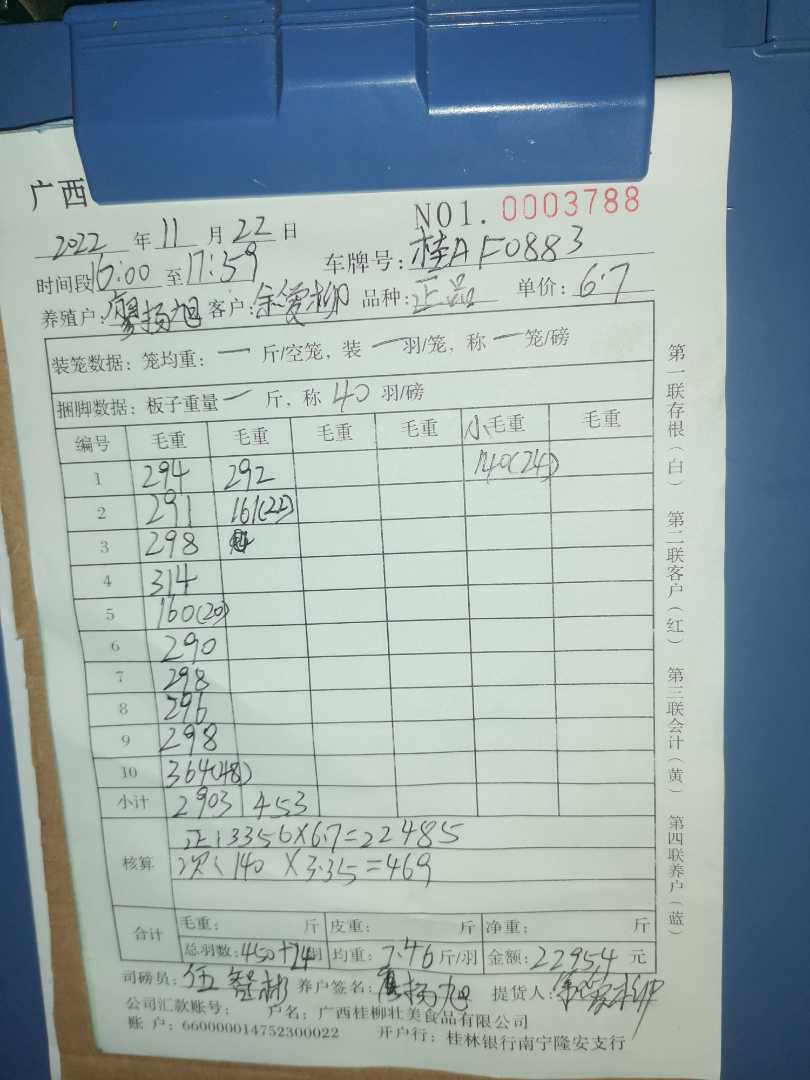 广西
NO1. 0003788
2022 年 11 月 22 日
时间段 16:00 至 17:59 车牌号: 桂AF0883
养殖户: 廖扬旭 客户: 余爱柳 品种: 正品 单价: 6.7
装笼数据: 笼均重: 一 斤/空笼, 装 一 羽/笼, 称 一 笼/磅
捆脚数据: 板子重量 一 斤, 称 40 羽/磅
编号 毛重 毛重 毛重 毛重 小毛重 毛重
1 294 292 140(24)
2 291 161(22)
3 298
4 314
5 160(20)
6 290
7 298
8 296
9 298
10 364(48)
小计 2903 453
核算 正: 3356×6.7=22485
次: 140 ×3.35=469
合计 毛重: 斤 皮重: 斤 净重: 斤
总羽数: 450+24羽 均重: 7.46 斤/羽 金额: 22954 元
司磅员: 伍 养户签名: 廖扬旭 提货人: 余爱柳
公司汇款账号: 户名: 广西桂柳壮美食品有限公司
账户: 660000014752300022 开户行: 桂林银行南宁隆安支行
第一联存根(白) 第二联客户(红) 第三联会计(黄) 第四联养户(蓝)